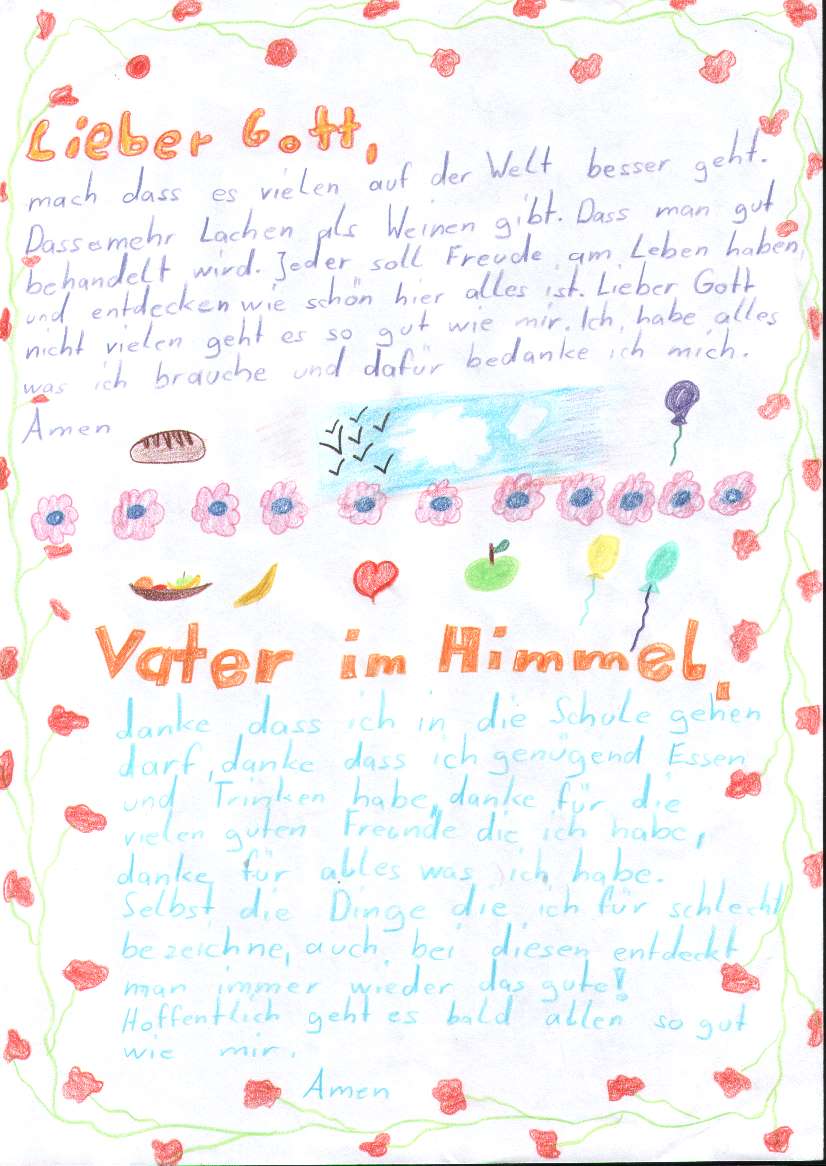 Lieber Gott,
mach dass es vielen auf der Welt besser geht.
Dass es mehr Lachen als Weinen gibt. Dass man gut
behandelt wird. Jeder soll Freude am Leben haben,
und entdecken wie schön hier alles ist. Lieber Gott
nicht vielen geht es so gut wie mir. Ich habe alles
was ich brauche und dafür bedanke ich mich.
Amen
Vater im Himmel,
danke dass ich in die Schule gehen
darf, danke dass ich genügend Essen
und Trinken habe, danke für die
vielen guten Freunde die ich habe,
danke für alles was ich habe.
Selbst die Dinge die ich für schlecht
bezeichne, auch bei diesen entdeckt
man immer wieder das gute!
Hoffentlich geht es bald allen so gut
wie mir.
Amen